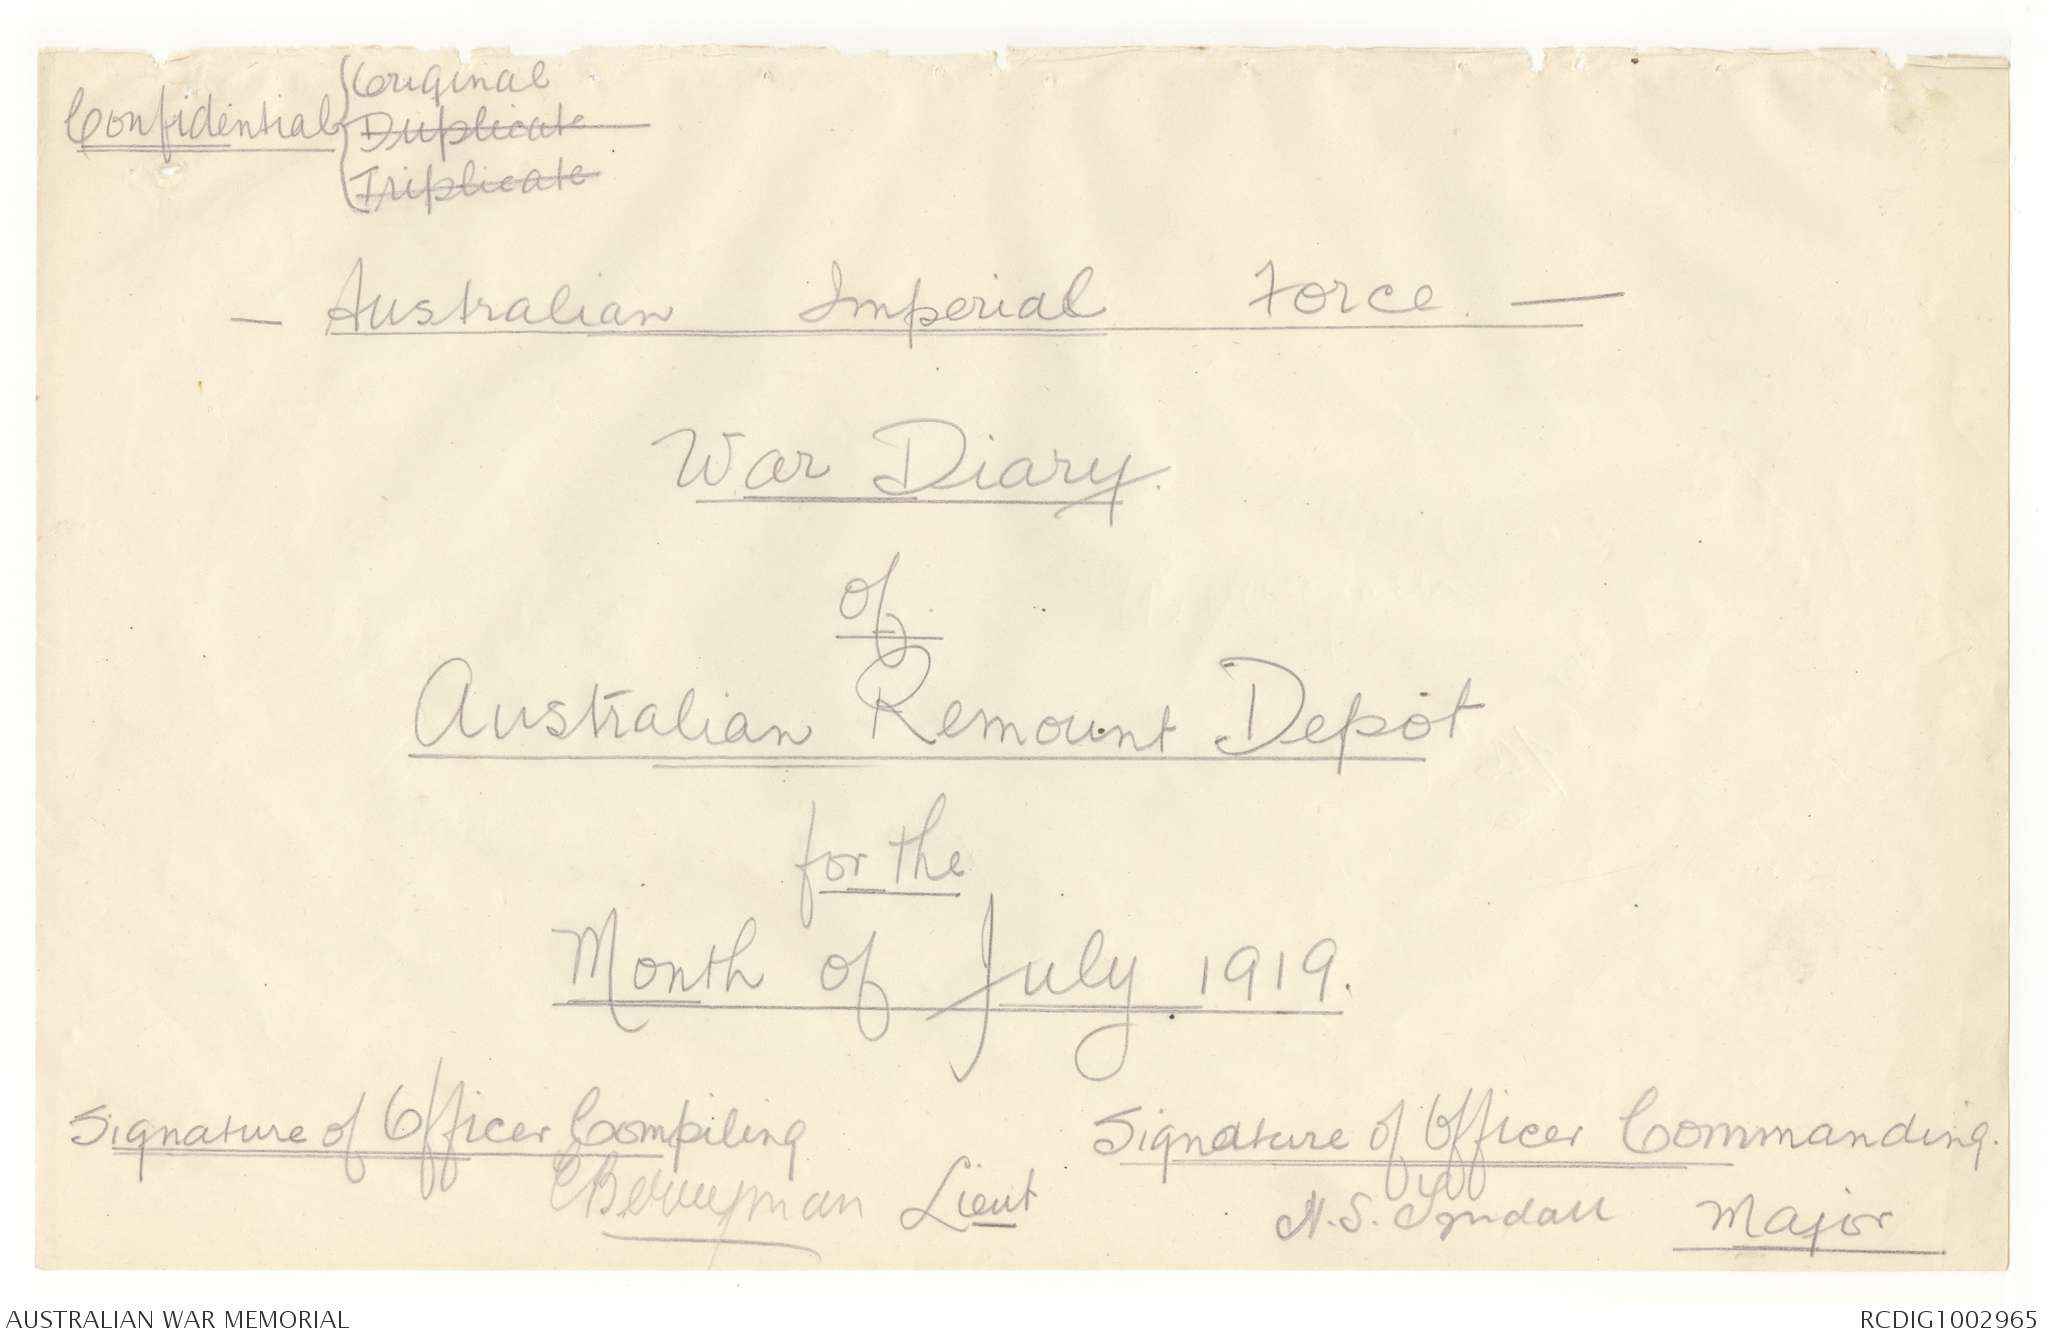 Confidential { Original
Duplicate
Triplicate
— Australian Imperial Force. —
War Diary.
of
Australian Remount Depôt
for the
Month of July 1919.
Signature of Officer Compiling
EBerryman Lieut
Signature of Officer Commanding.
H.S. Tyndall Major
AUSTRALIAN WAR MEMORIAL
RCDIG1002965